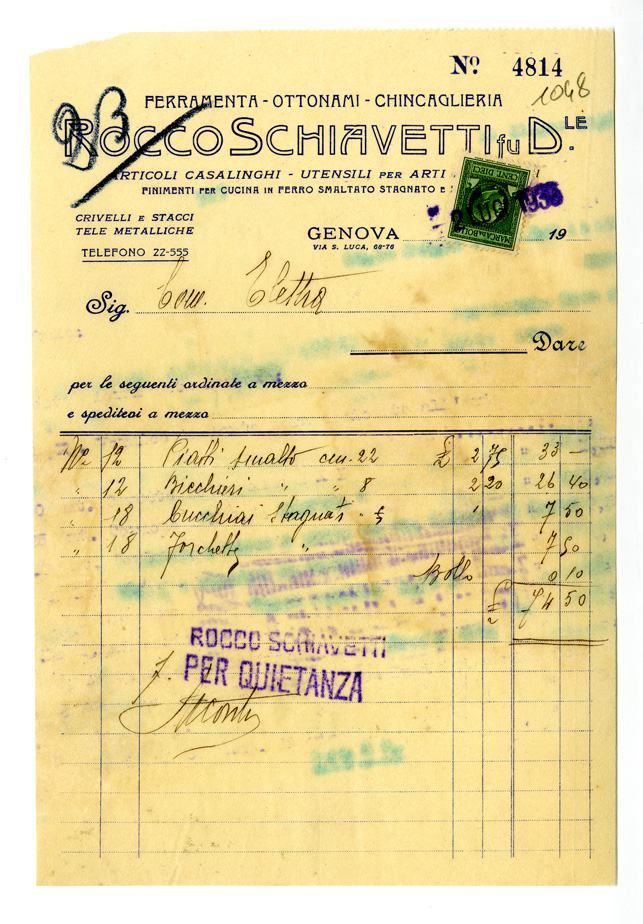 Nº 4814
1048
FERRAMENTA - OTTONAMI - CHINCAGLIERIA
ROCCO SCHIAVETTI fu D.LE
ARTICOLI CASALINGHI - UTENSILI PER ARTI
FINIMENTI PER CUCINA IN FERRO SMALTATO STAGNATO E
CENT. DIECI
MARCA DA BOLLO
CRIVELLI E STACCI
TELE METALLICHE
TELEFONO 22-555
GENOVA 19
VIA S. LUCA, 68-76
Sig. Com. Elettra
Dare
per le seguenti ordinate a mezzo
e spediteci a mezzo
Nº 12 Piatti smalto cm. 22 £ 2 75 33 —
" 12 Bicchieri " " 8 2 20 26 40
" 18 Cucchiai Stagnati 7 50
" 18 Forchette " 7 50
Bollo 0 10
74 50
ROCCO SCHIAVETTI
PER QUIETANZA